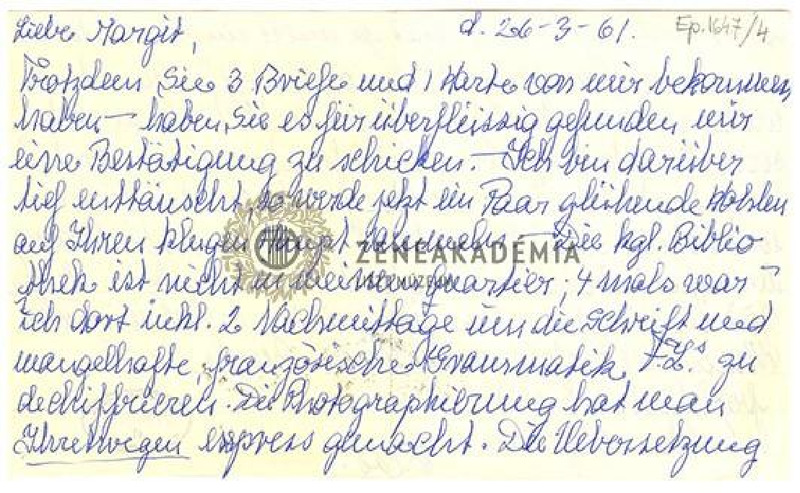 Liebe Margit, d. 26-3-61. Ep. 1647/4
Trotzdem Sie 3 Briefe und 1 Karte von mir bekommen
haben – haben Sie es für überflüssig gefunden mir
eine Bestätigung zu schicken. – Ich bin darüber
tief enttäuscht, so werde jetzt ein Paar glühende Kohlen
auf Ihren klugen Haupt sammeln – Die kgl. Biblio-
ZENEAKADEMIA
thek ist nicht in meinem quartier; 4 mals war
ich dort inkl. 2 Nachmittage um die Schrift und
mangelhafte, französische Grammatik F.L.s zu
dechiffrieren. Die Photographierung hat man
Ihretwegen express gemacht. Die Uebersetzung